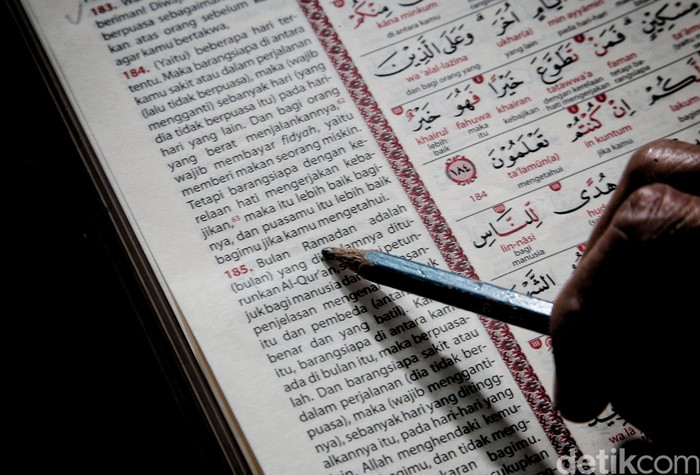 183.
beriman! Diwa
berpuasa sebagaiman
kan atas orang sebelum k
agar kamu bertakwa.
184. (Yaitu) beberapa hari ter-
tentu. Maka barangsiapa di antara
kamu sakit atau dalam perjalanan
(lalu tidak berpuasa), maka (wajib
mengganti) sebanyak hari (yang
dia tidak berpuasa itu) pada hari-
hari yang lain. Dan bagi orang
yang berat menjalankannya,
wajib membayar fidyah, yaitu
memberi makan seorang miskin.
Tetapi barangsiapa dengan ke-
relaan hati mengerjakan keba-
jikan,63 maka itu lebih baik bagi-
nya, dan puasamu itu lebih baik
bagimu jika kamu mengetahui.
185. Bulan Ramadan adalah
(bulan) yang di amnya ditu-
runkan Al-Qur'an, petun-
juk bagi manusia dan
penjelasan mengenai
itu dan pembeda (antara
benar dan yang batil). Kar
itu, barangsiapa di antara kamu
ada di bulan itu, maka berpuasa-
lah. Dan barangsiapa sakit atau
dalam perjalanan (dia tidak ber-
puasa), maka (wajib menggantir-
nya), sebanyak hari yang ditingg-
alkannya itu, pada hari-hari yang
lain. Allah menghendaki kemu-
bagimu, dan tidak meng-
karan bagimu.
kupkan
مِنْكُمْ
kāna minkum
ada di antara kamu
اُخَرَ
ukhar(a)
yang lain
min ayyāmin
pada hari
وَعَلَى الَّذِيْنَ
wa 'alal-lażīna
dan bagi orang yang
مِسْكِيْنٍ
فَمَنْ
faman
maka barang-
تَطَوَّعَ
taṭawwa'a
dengan kerelaan
hati mengerjakan
خَيْرًا
khairan
kebajikan
فَهُوَ
fahuwa
maka
itu
خَيْرٌ
khairul
lebih
baik
لَّكُمْ
اِنْ كُنْتُمْ
in kuntum
jika kamu
تَعْلَمُوْنَ
ta'lamūn(a)
mengetahui
١٨٤
184
هُدًى
hud
لِّلنَّاسِ
lin-nāsi
bagi
manusia
detikcom